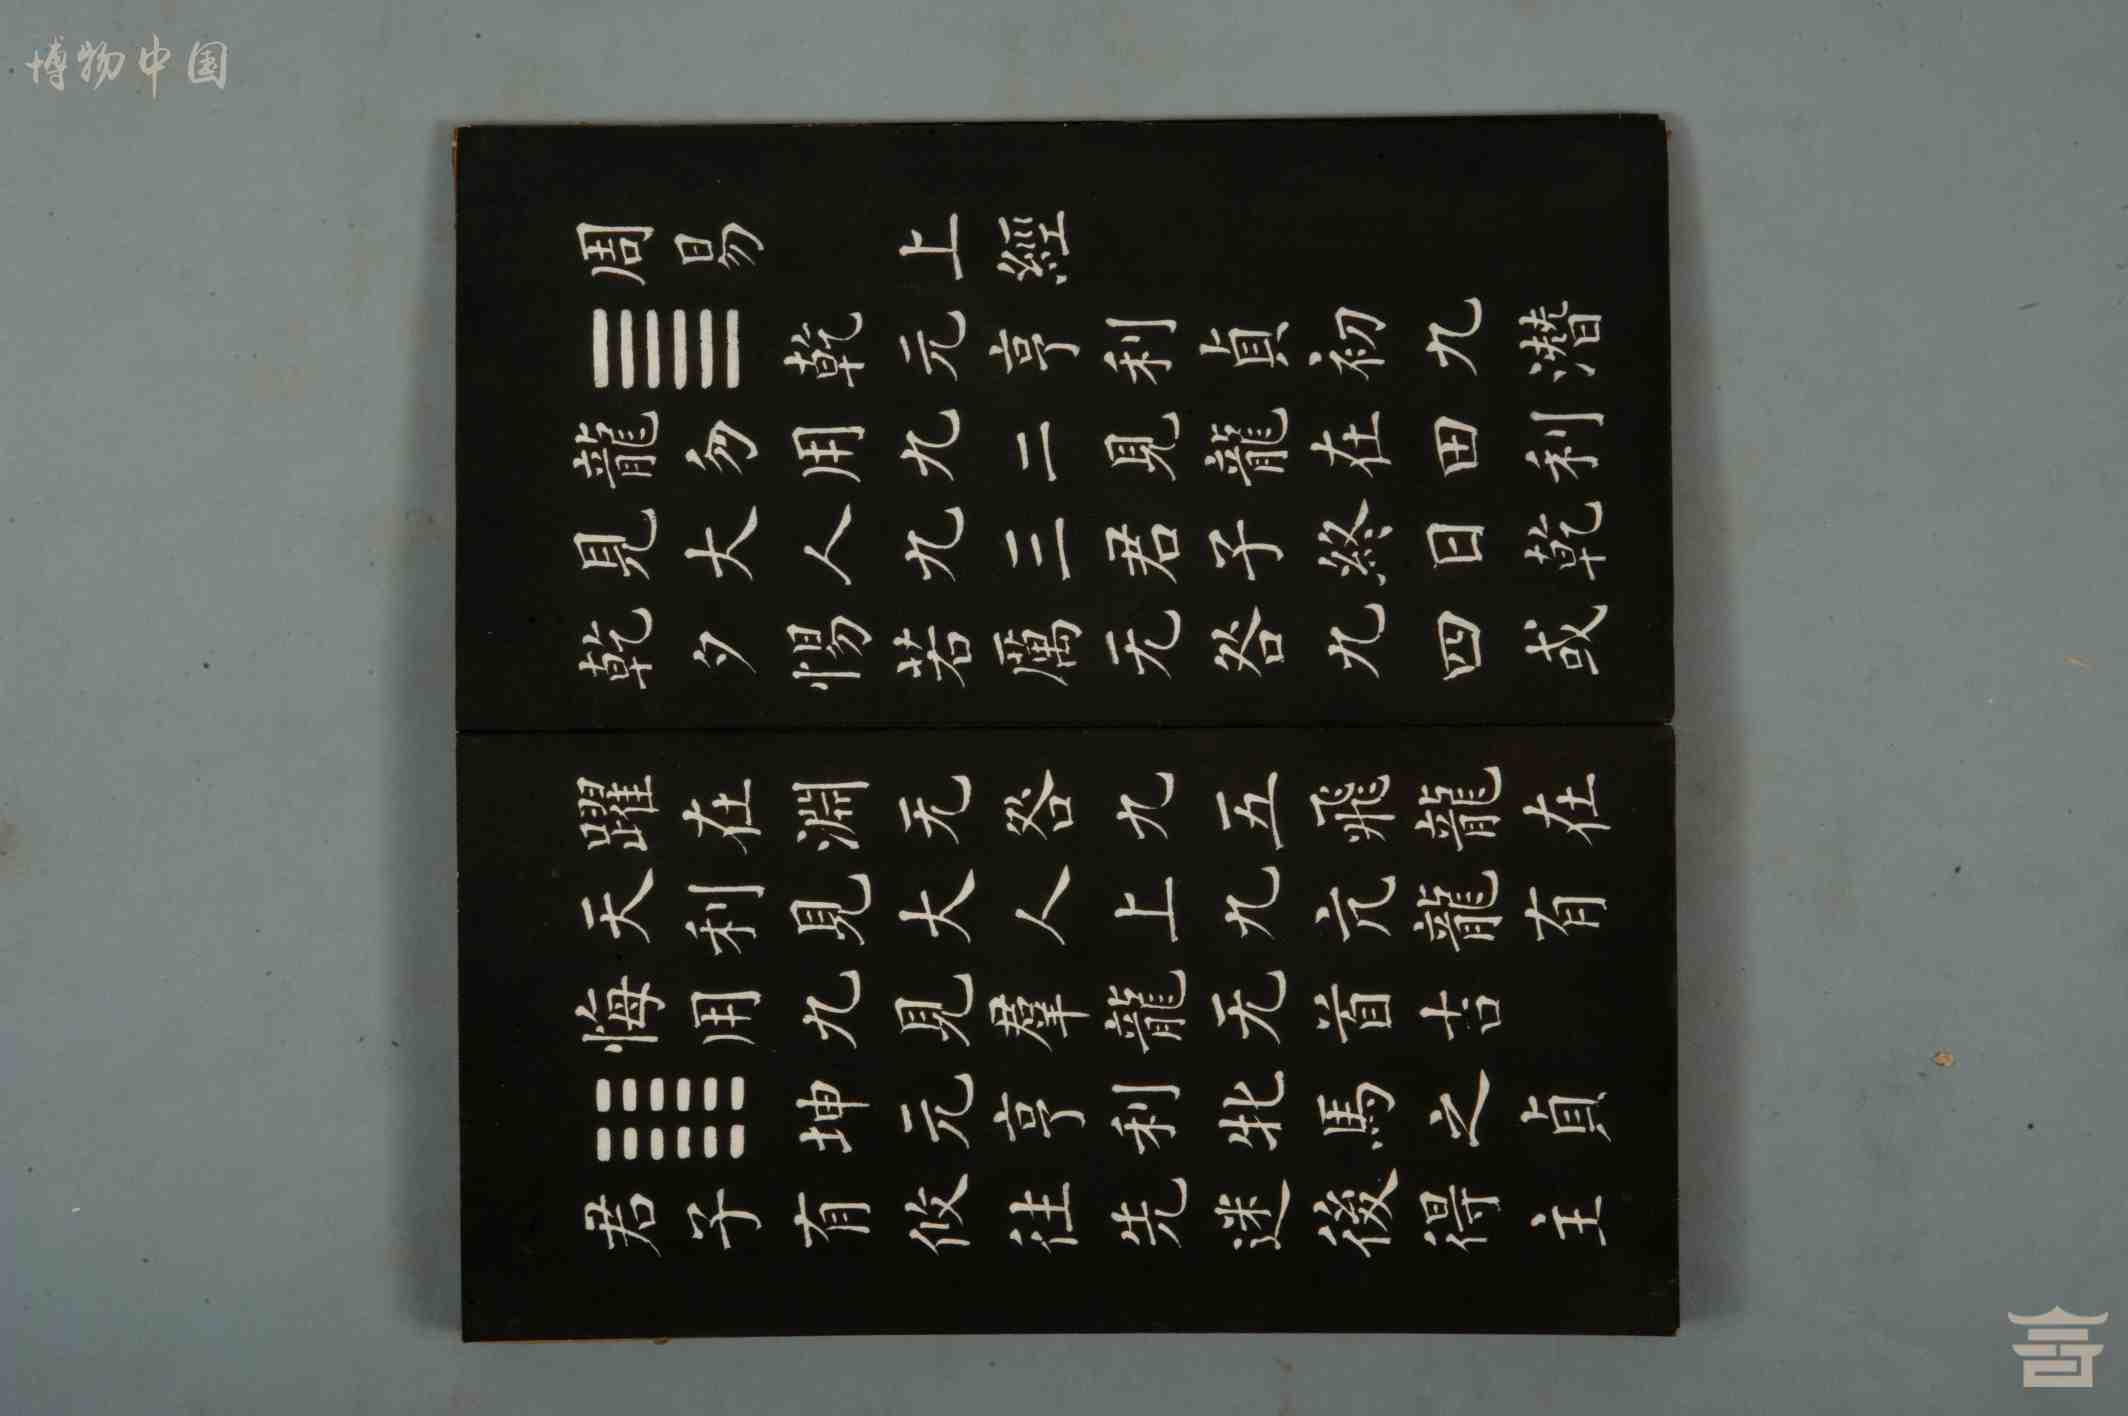 博物中国
周易 上經
䷀乾元亨利貞初九潛
龍勿用九二見龍在田利
見大人九三君子終日乾
乾夕惕若厲无咎九四或
躍在淵无咎九五飛龍在
天利見大人上九亢龍有
悔用九見羣龍无首吉
䷁坤元亨利牝馬之貞
君子有攸往先迷後得主